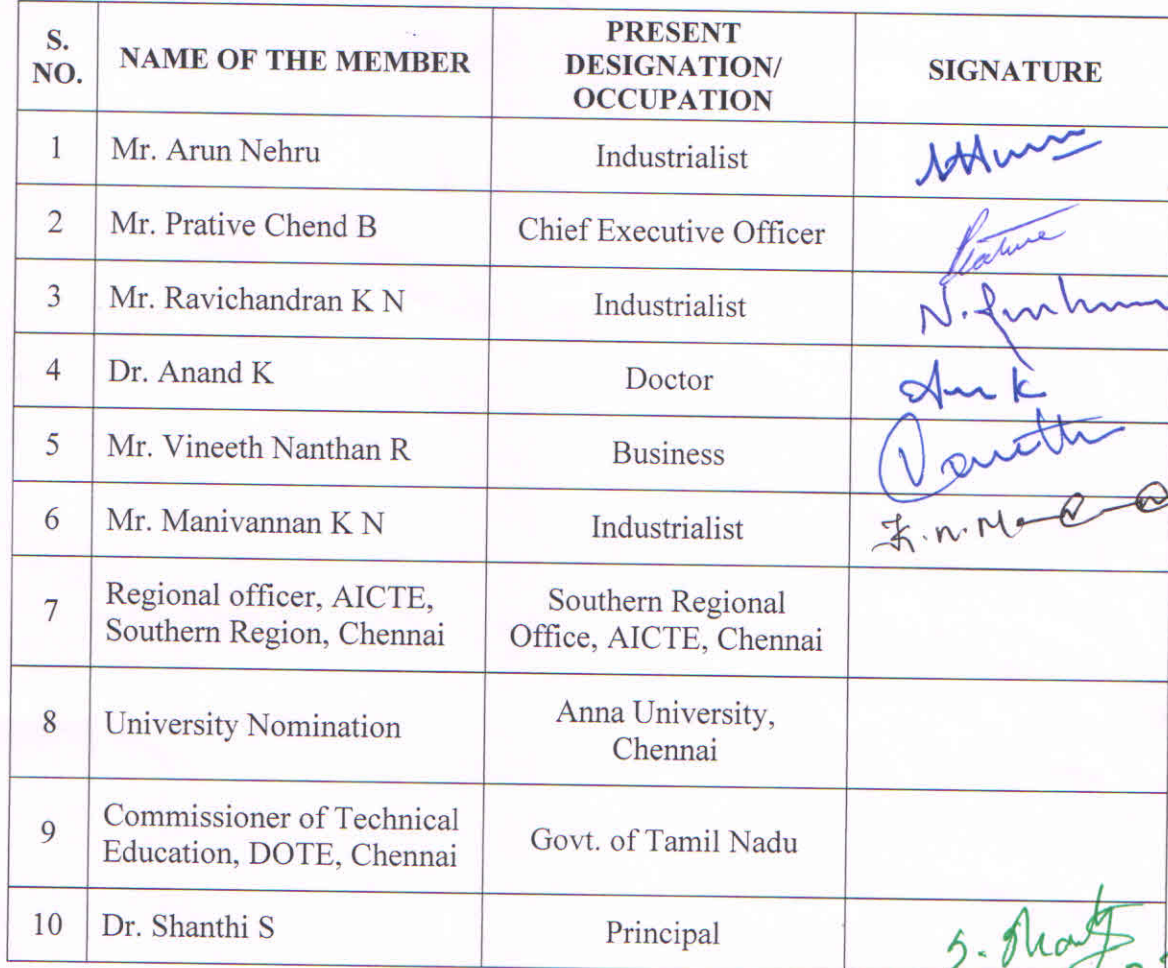 S. NO. NAME OF THE MEMBER PRESENT DESIGNATION/ OCCUPATION SIGNATURE
1 Mr. Arun Nehru Industrialist
2 Mr. Prative Chend B Chief Executive Officer
3 Mr. Ravichandran K N Industrialist
4 Dr. Anand K Doctor
5 Mr. Vineeth Nanthan R Business
6 Mr. Manivannan K N Industrialist
7 Regional officer, AICTE, Southern Region, Chennai Southern Regional Office, AICTE, Chennai
8 University Nomination Anna University, Chennai
9 Commissioner of Technical Education, DOTE, Chennai Govt. of Tamil Nadu
10 Dr. Shanthi S Principal